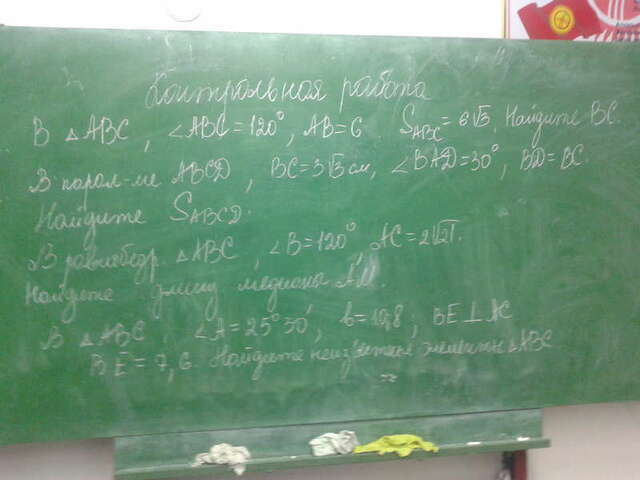 Контрольная работа
В △ABC, ∠ABC = 120°, AB = 6. S_ABC = 6√3. Найдите BC.
В парал-ме ABCD, BC = 3√3 см, ∠BAD = 30°, BD = BC.
Найдите S_ABCD.
В равнобедр. △ABC, ∠B = 120°, AC = 2√21.
Найдите длину медианы AM.
В △ABC, ∠A = 25°30', b = 10,8; BE ⊥ AC
BE = 7,6. Найдите неизвестные элементы △ABC